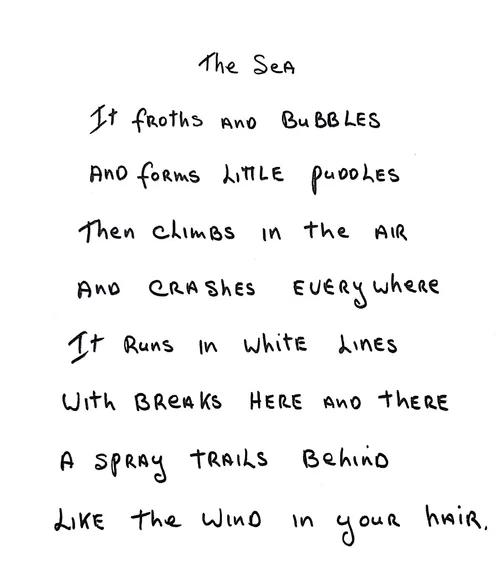 The Sea
It froths and bubbles
And forms little puddles
Then climbs in the air
And crashes everywhere
It runs in white lines
With breaks here and there
A spray trails behind
Like the wind in your hair.